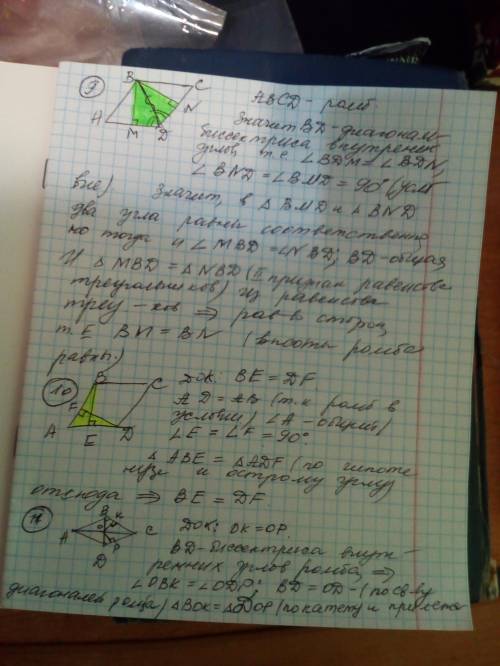 9
B
C
A
N
M
D
ABCD - ромб.
Значит BD - диагональ
биссектриса внутрених
углов, т.е ∠BDM = ∠BDN,
∠BND = ∠BMD = 90° (усло
вие) Значит, в △BMD и △BND
два угла равны соответственно,
но тогда и ∠MBD = ∠NBD; BD - общая
И △MBD = △NBD (II признак равенства
треугольников) из равенства
треу-ков ⇒ рав-в сторон,
т. Е BM = BN (высоты ромба
равны)
10
B
C
F
A
E
D
Док: BE = DF
AD = AB (т.к ромб в
условии) ∠A - общий)
∠E = ∠F = 90°
△ABE = △ADF (по гипоте
нузе и острому углу)
отсюда ⇒ BE = DF.
11
B
K
A
O
C
P
D
Док: OK = OP.
BD - биссектриса внут-
ренных углов ромба, ⇒
∠OBK = ∠ODP; BD = OD - (по св-ву
диагоналей ромба) △BOK = △DOP (по катету и прилежа